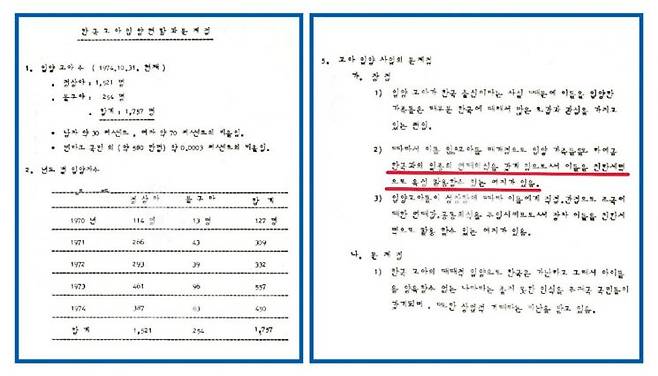 한국고아입양현황과문제점
1. 입양 고아 수 ( 1974.10.31. 현재 )
• 정상아 : 1,521 명
• 불구아 : 254 명
• 합계 : 1,757 명
• 남자 약 30 퍼센트, 여자 약 70 퍼센트의 비율임.
국민의 ( 약 580 만명 ) 약 0.0003 퍼센트의 비율임.
2. 년도 별 입양자수
정상아 불구아 합계
1970 년 114 명 13 명 127 명
1971 266 43 309
1972 293 39 332
1973 461 96 557
1974 387 63 450
합계 1,521 254 1,757
5. 고아 입양 사업의 문제점
가. 장점
1) 입양 고아가 한국 출신이라는 사실 때문에 이들을 입양한
가족들은 대부분 한국에 대해서 많은 호감과 관심을 가지고
있는 편임.
2) 따라서 이들 입양고아를 매개점으로 입양 가족들로 하여금
한국과의 일종의 연대의식을 갖게 있으므로서 이들을 친한세력
으로 육성 활용할수 있는 여지가 있음.
3) 입양고아들이 성장함에 따라 이들에게 직접,간접으로 조국에
대한 연대감,공동의식을 주입시키므로서 장차 이들을 친한세
력으로 활용 할수 있는 여지가 있음.
나. 문제점
1) 한국 고아의 대대적 입양으로 한국은 가난하고 그래서 아이들
을 양육할수 없는 나라라는 좋지 못한 인식을 주재국 국민들이
갖게되며, 또한 상업적 거래라는 비난을 받고 있음.